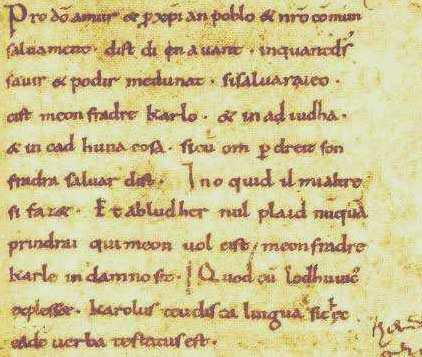 Pro dō amur & p xpian poblo & nr̄o cōmun
saluament · dist di en auant · inquant dš
sauir & podir medunat · sisaluaraieo ·
cist meon fradre karlo · & in ad iudha ·
& in cad huna cosa · sicū om p dreit son
fradra saluar dist · Ino quid il mialtre
si faz& · Et abludher nul plaid nūquā
prindrai qui meon uol cist meonfradre
karle in damno sit · Quod cū lodhuuic̄
explesset · karolus teudisca lingua sic ec
eade uerba testatus est ·